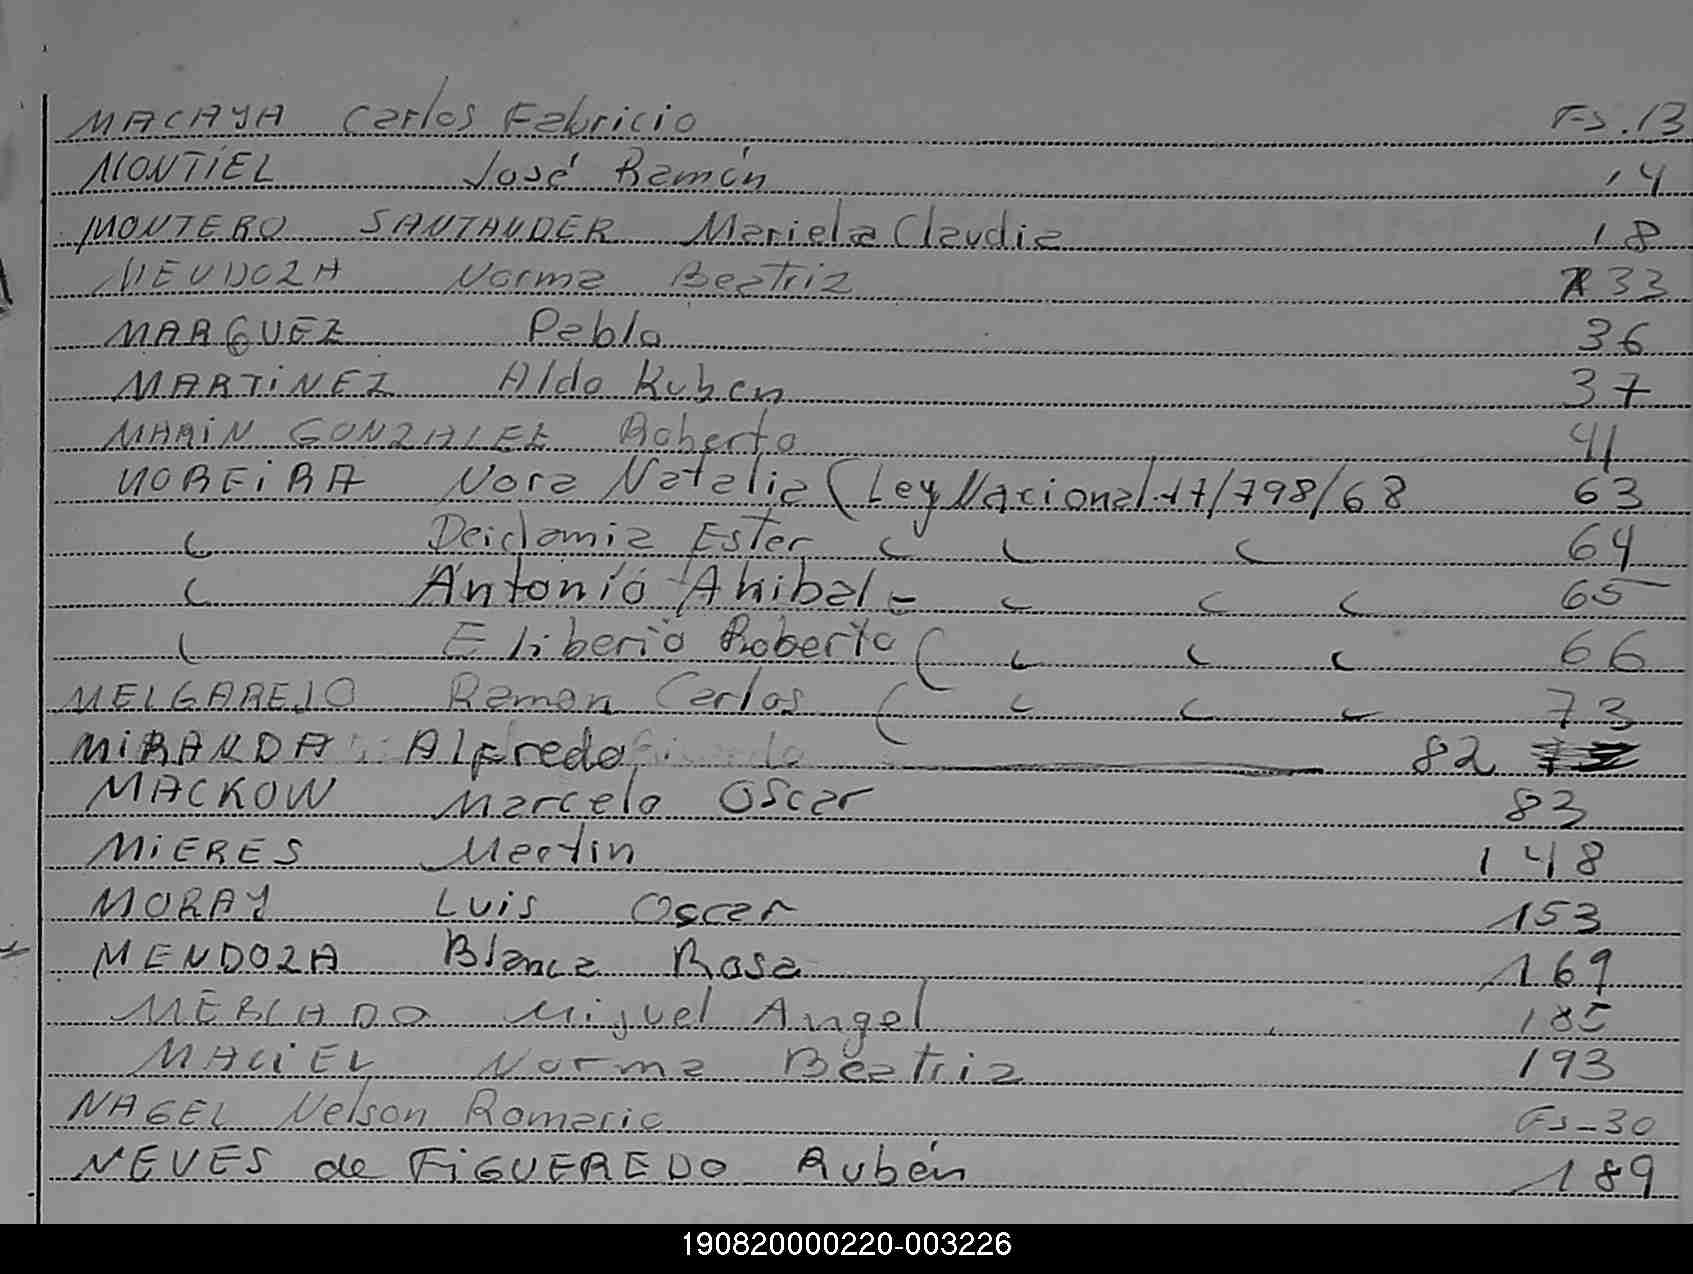 MACAYA Carlos Fabricio Fs. 13
MONTIEL José Ramón 14
MONTERO SANTANDER Mariela Claudia 18
MENDOZA Norma Beatriz 33
MARQUEZ Pablo 36
MARTINEZ Aldo Ruben 37
MARIN GONZALEZ Roberto 41
MOREIRA Nora Natalia (Ley Nacional 17/798/68 63
" Deidamia Ester " " " 64
" Antonio Anibal - " " " 65
" Eliberio Roberto ( " " " 66
MELGAREJO Ramon Carlos ( " " " 73
MIRANDA Alfredo 82
MACKOW Marcelo Oscar 83
MIERES Martin 148
MORAY Luis Oscar 153
MENDOZA Blanca Rosa 169
MERCADO Miguel Angel 185
MACIEL Norma Beatriz 193
NAGEL Nelson Romario Fs-30
NEVES de FIGUEREDO Rubén 189
190820000220-003226